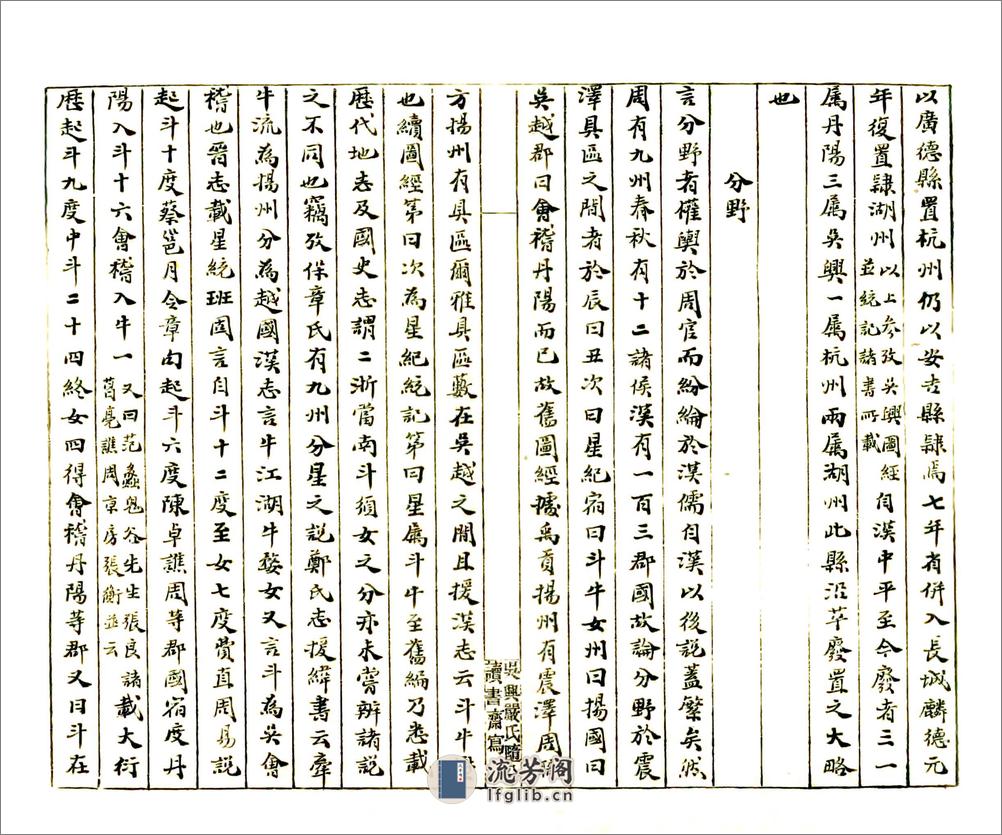 以廣德縣置杭州仍以安吉縣隷焉七年省併入長城麟德元
年復置隷湖州以上參攷吳興圖經並統記諸書所載自漢中平至今廢者三一
属丹陽三属吳興一属杭州兩属湖州此縣沿革廢置之大略
也
分野
言分野者權輿於周官而紛綸於漢儒自漢以後説蓋繁矣然
周有九州春秋有十二諸侯漢有一百三郡國故論分野於震
澤具區之間者於辰曰丑次曰星紀宿曰斗牛女州曰揚國曰
吳越郡曰會稽丹陽而已故舊圖經據禹貢揚州有震澤周
吳興嚴氏隨
讀書齋寫
方揚州有具區爾雅具區藪在吳越之間且援漢志云斗牛
也續圖經第曰次為星紀統記第曰星属斗牛至舊編乃悉載
歴代地志及國史志謂二浙當南斗須女之分亦未嘗辨諸説
之不同也竊攷保章氏有九州分星之説鄭氏志援緯書云牽
牛流為揚州分為越國漢志言牛江湖牛婺女又言斗為吳會
稽也晉志載星統班固言自斗十二度至女七度費直周易説
起斗十度蔡邕月令章句起斗六度陳卓譙周等郡國宿度丹
陽入斗十六會稽入牛一又曰范蠡鬼谷先生張良諸葛亮譙周京房張衡並云載大衍
歴起斗九度中斗二十四終女四得會稽丹陽等郡又曰斗在
流芳阁
lfglib.cn